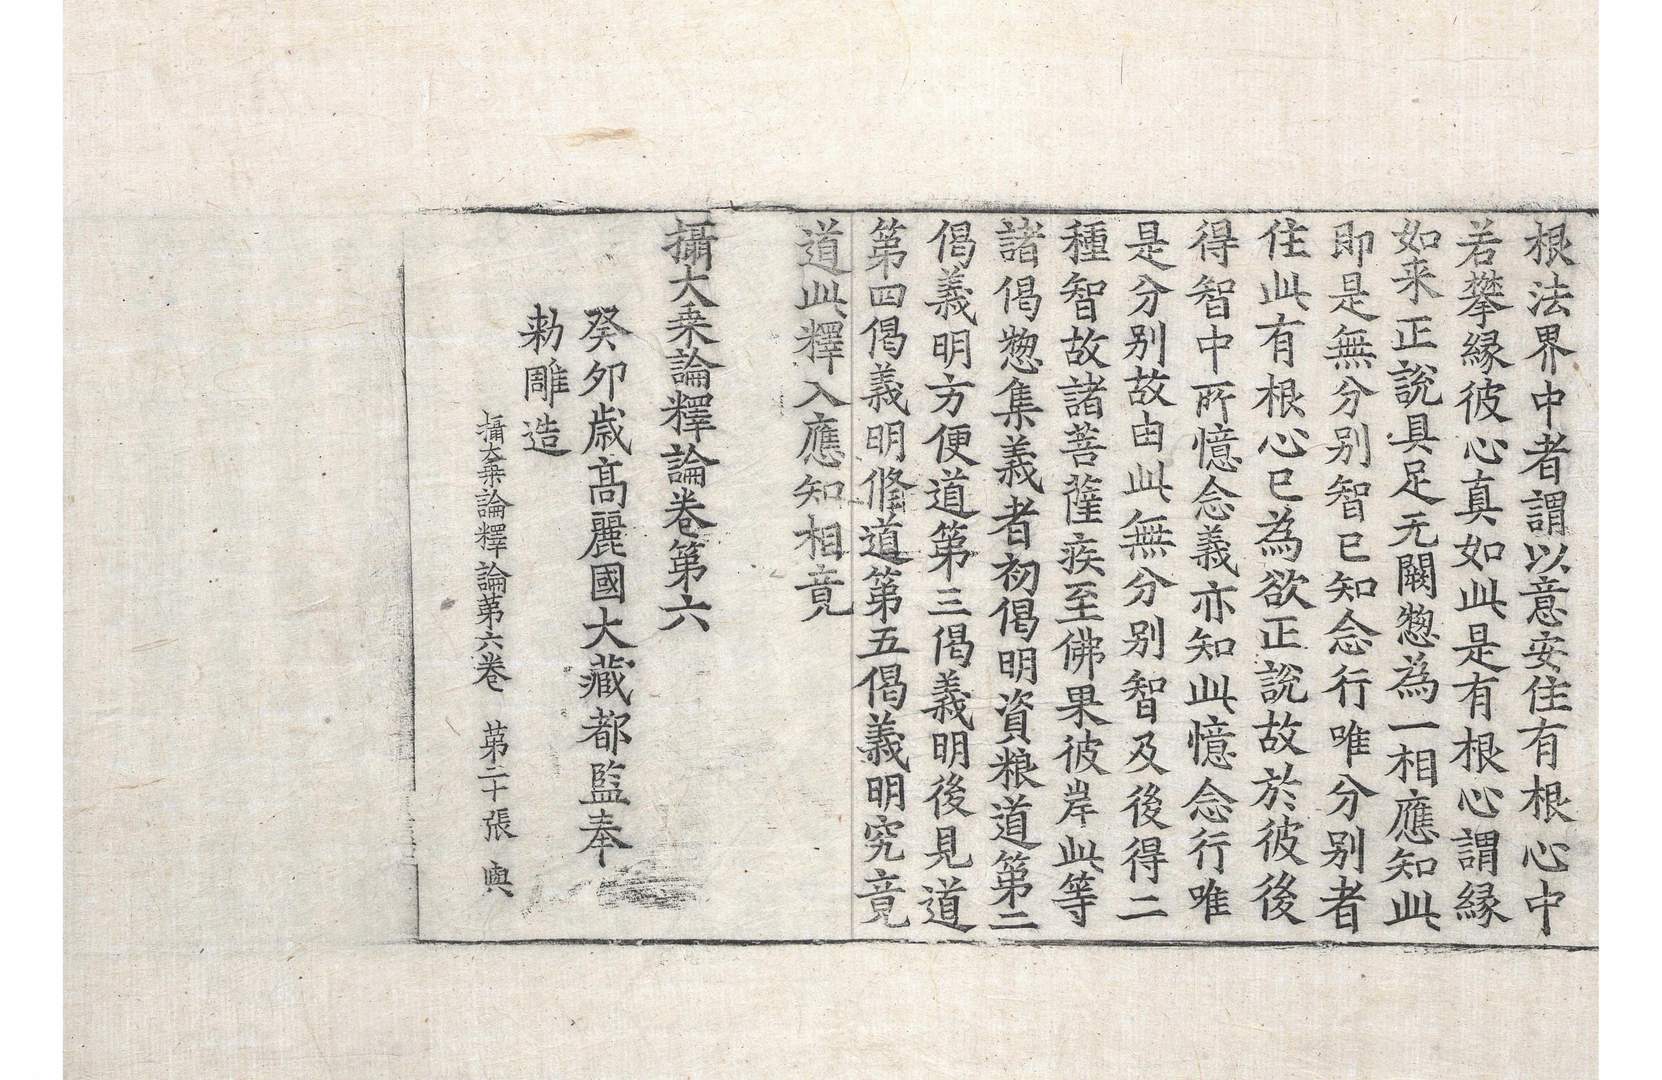 根法界中者謂以意安住有根心中
若攀縁彼心真如此是有根心謂縁
如来正說具足无闕惣為一相應知此
即是無分別智已知念行唯分別者
住此有根心已為欲正說故於彼後
得智中所憶念義亦知此憶念行唯
是分別故由此無分別智及後得二
種智故諸菩薩疾至佛果彼岸此等
諸偈惣集義者初偈明資粮道第二
偈義明方便道第三偈義明後見道
第四偈義明脩道第五偈義明究竟
道此釋入應知相竟
攝大乗論釋論卷第六
癸卯歳髙麗國大藏都監奉
勑雕造
攝大乗論釋論苐六卷 苐二十張 輿